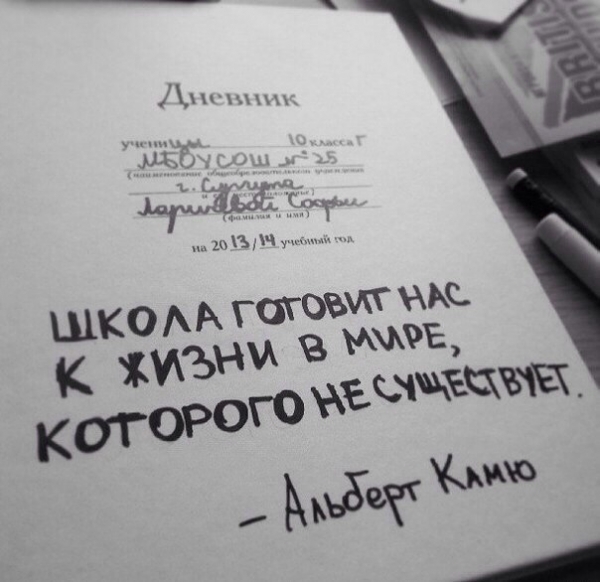 BRITISH
Дневник
ученицы 10 класса Г
МБОУСОШ №25
(наименование общеобразовательного учреждения
г. Сургута
Ларичевой Софьи
(фамилия и имя)
на 2013/14 учебный год
ШКОЛА ГОТОВИТ НАС
К ЖИЗНИ В МИРЕ,
КОТОРОГО НЕ СУЩЕСТВУЕТ.
– Альберт Камю